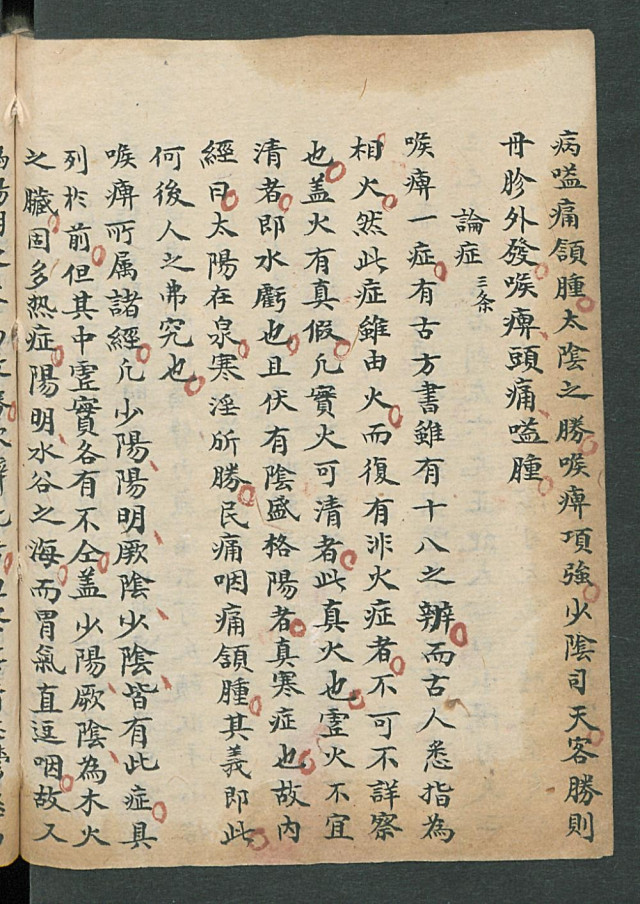 病嗌痛頷腫太陰之勝喉痺項強少陰司天客勝則
冊胗外發喉痺頭痛嗌腫
論症三条
喉痺一症有古方書雖有十八之辨而古人悉指為
相火然此症雖由火而復有非火症者不可不詳察
也盖火有真假凢實火可清者此真火也虛火不宜
清者即水虧也且伏有陰盛格陽者真寒症也故内
經曰太陽在泉寒淫所勝民痛咽痛頷腫其義即此
何後人之弗究也
喉痺所属諸經凢少陽陽明厥陰少陰皆有此症具
列於前但其中虛實各有不仝盖少陽厥陰為木火
之臟固多热症陽明水谷之海而胃氣直逗咽故又